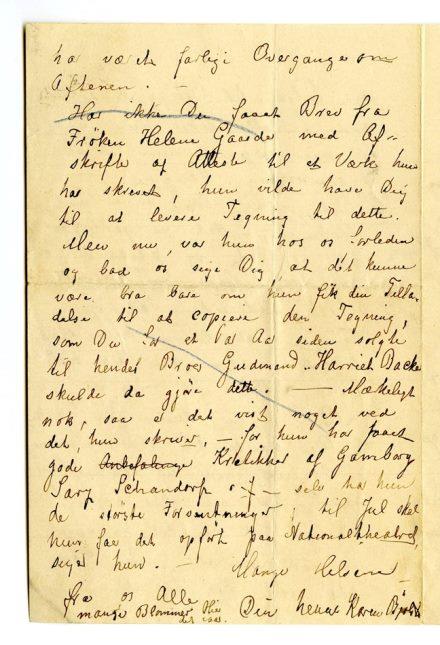 har været farlige Overgange om
Aftenen. —
Har ikke Du faaet Brev fra
Frøken Helene Gaarde med Af-
skrifte af Atteste til et Værk hun
har skrevet, hun vilde have Dig
til at levere Tegning til dette.
Men nu var hun hos os forleden
og bad os sige Dig, at det kunne
være bra bare om hun fik din Tilla-
delse til at copiere den Tegning,
som Du for et Par Aar siden solgte
til hendes Broer Gudmund. Harriet Backe
skulde da gjøre dette. — Mækeligt
nok, saa er dat vist noget ved
det, hun skriver, — for hun har faaet
gode Kritikker af Gamborg
Schandorf — selv har hun
de største Forventninger, til Jul skal
hun faa det opført paa Nationaltheatret,
siger hun. — Mange Hilsen
fra os Alle
mange Blommer Din henne Karen